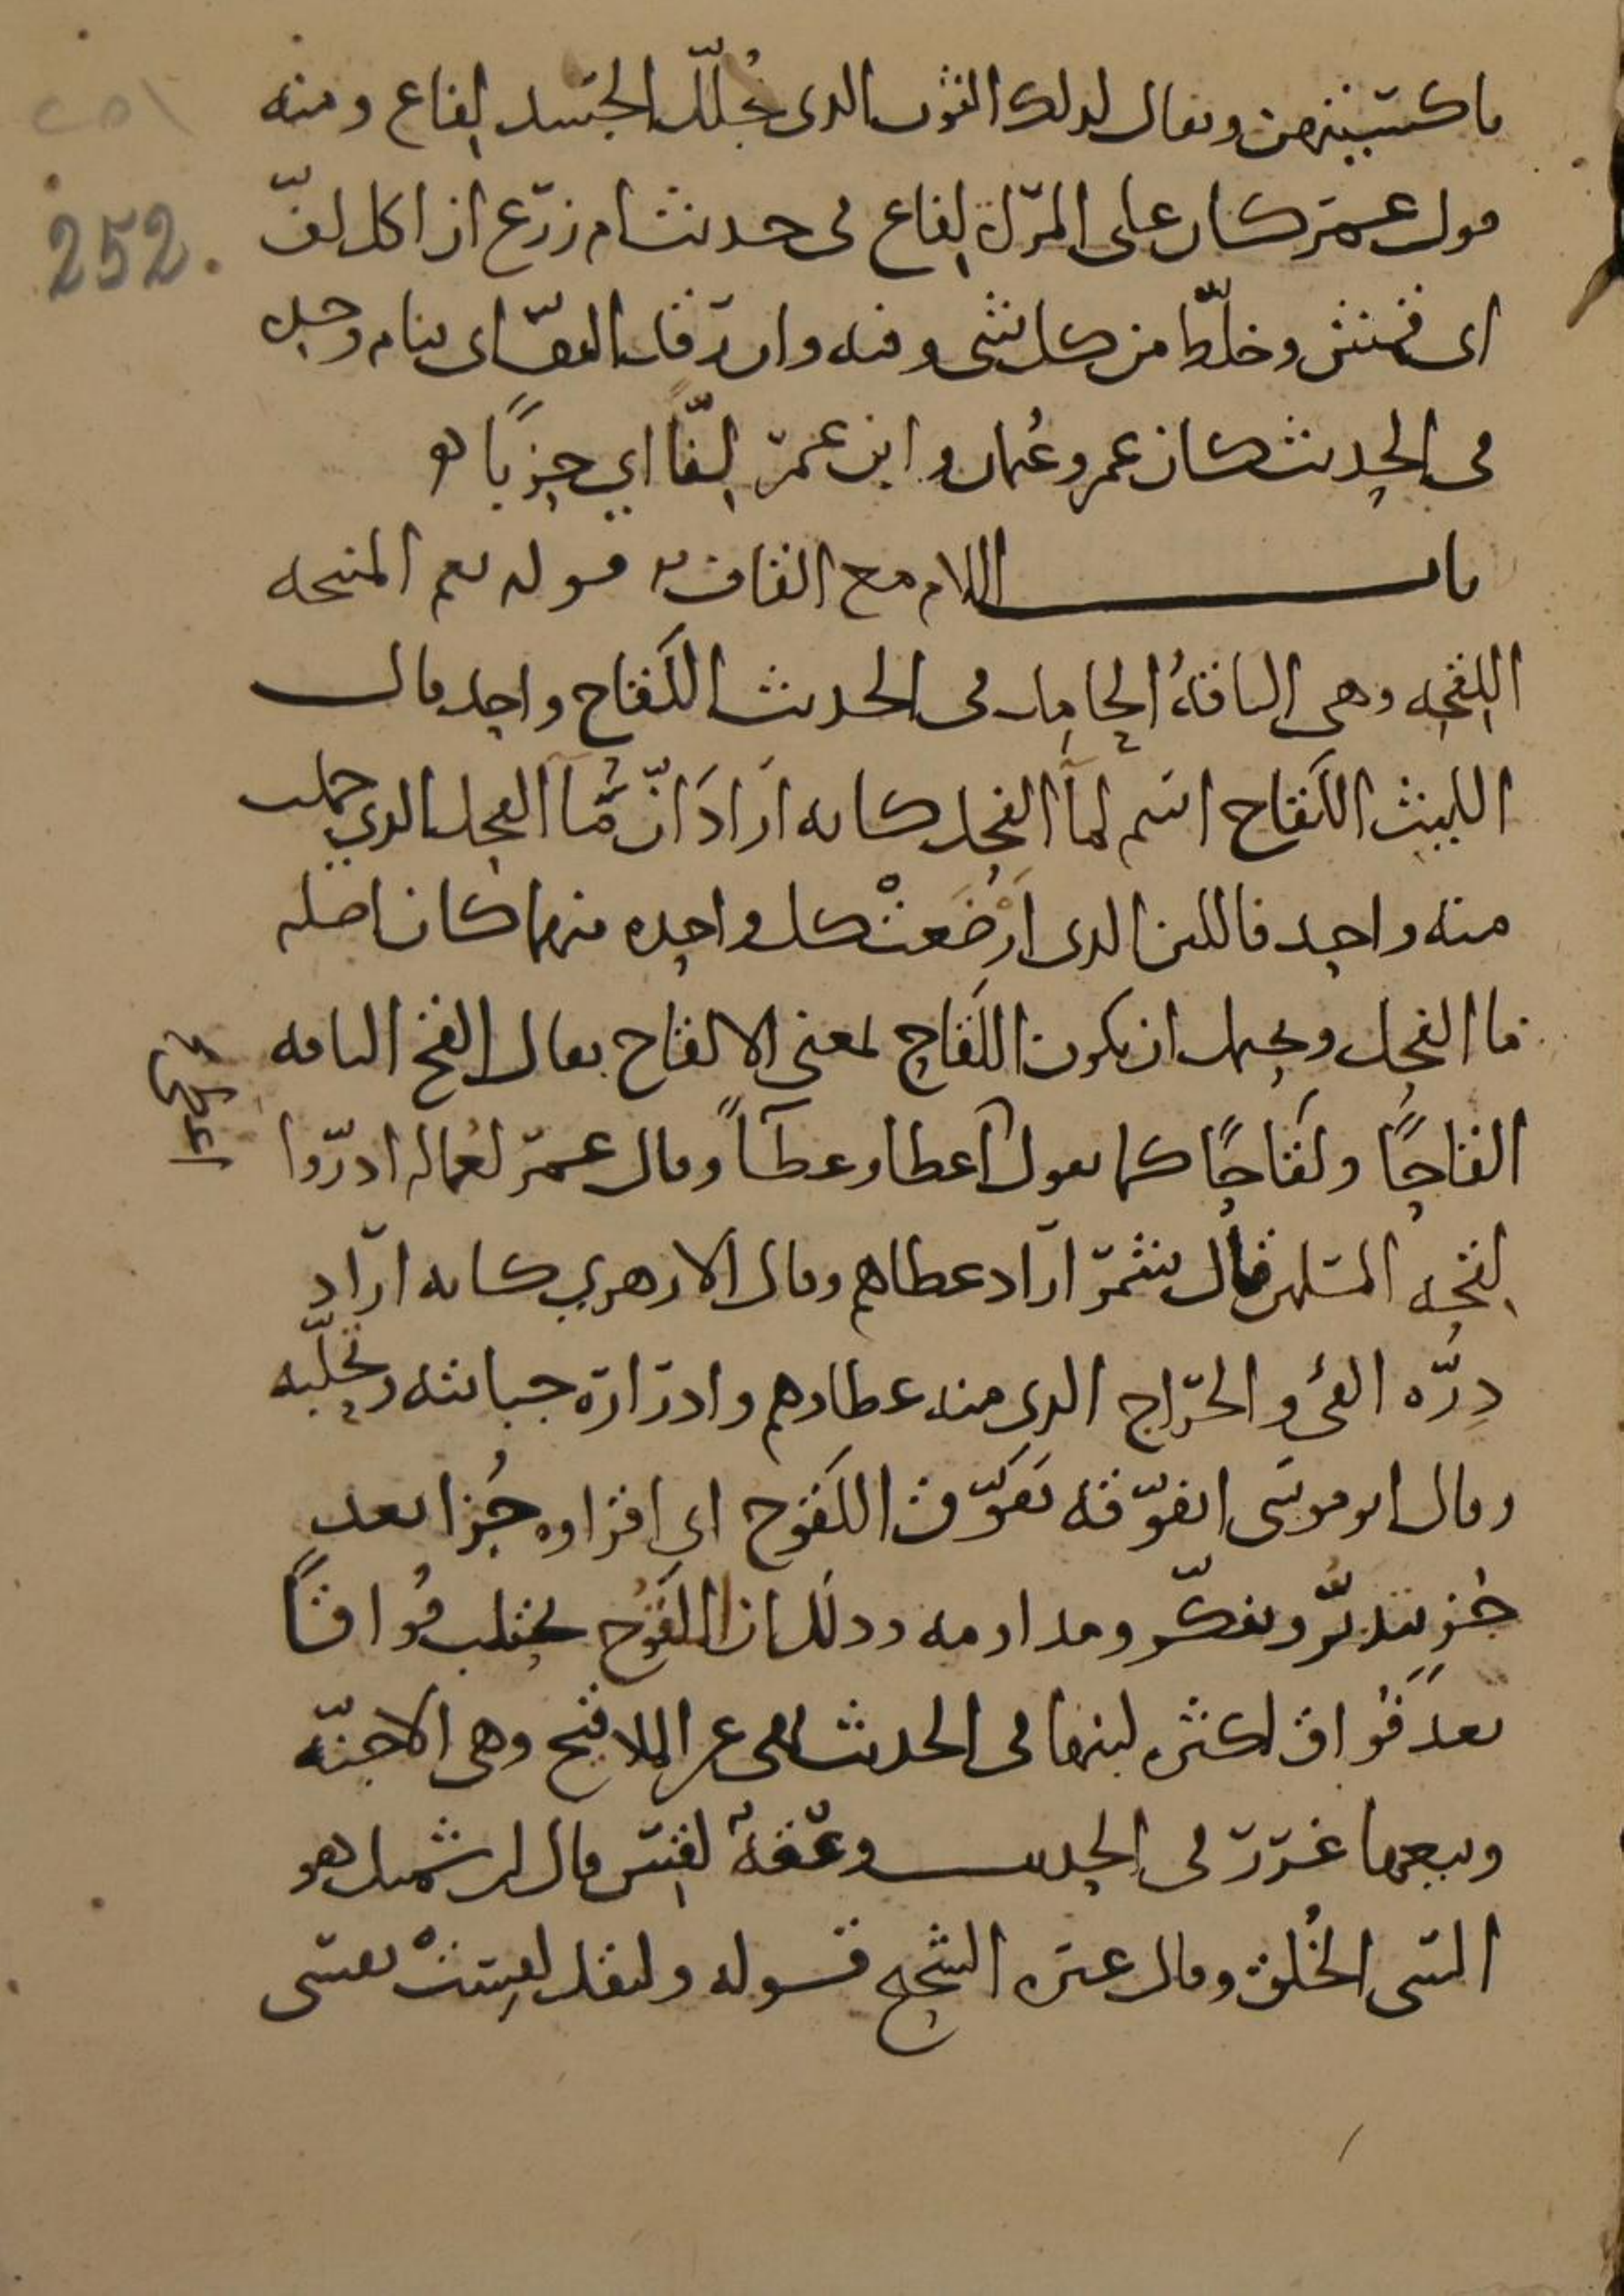 252.
باكسيتهن ويقال لذلك الثوب الذي يُجلّل الجسد لِفاع ومنه
قول عمر كان على المرأة لِفاع في حديث ام زرع ان اكل لفّ
اي قمش وخلّط من كل شي وفيه وان رقد التفّ اي ينام وحده
في الحديث كان عمر وعُثمان وابن عمر لِفًّا اي حِزبًا
باب اللام مع القاف قوله نعم المنحه
اللِقحه وهي الناقةُ الحامل في الحديث اللَقاح واحد قال
الليث اللَقاح اسم لمآ الفحل كانه ارادَ انّ مآ الفحل الذي حملت
منه واحد فاللبن الذي ارْضَعتْ كل واحده منهما كان اصله
مآ الفحل ويحتمل ان يكون اللَقاح بمعنى الالقاح يقال القح الناقه
القاحًا ولَقاحًا كما يقول اعطا وعطآً وقال عمر لعُماله ادرّوا
لِقحه المسلمين قال شمر اراد عطاهم وقال الازهري كانه اراد
دِرّه الفئ والخراج الذي منه عطاوهم وادراره جبايته وتحلّبه
وقال ابو موسى اتفوّقه تفوّق اللَقوح اي اقراوه جُزا بعد
جُزءٍ بتدبّر وتفكّر ومداومه وذلك ان اللَقوُح تحتلب فُواقًا
بعد فُواق لكثره لبنها في الحديث نهى عن الملاقيح وهي الاجنّه
وبيعها غرر في الحديث وعْقَةٌ لقِس قال ابن شميل هو
السّي الخُلق وقال غيره الشحيح قوله وليقل لقِستْ نفسي